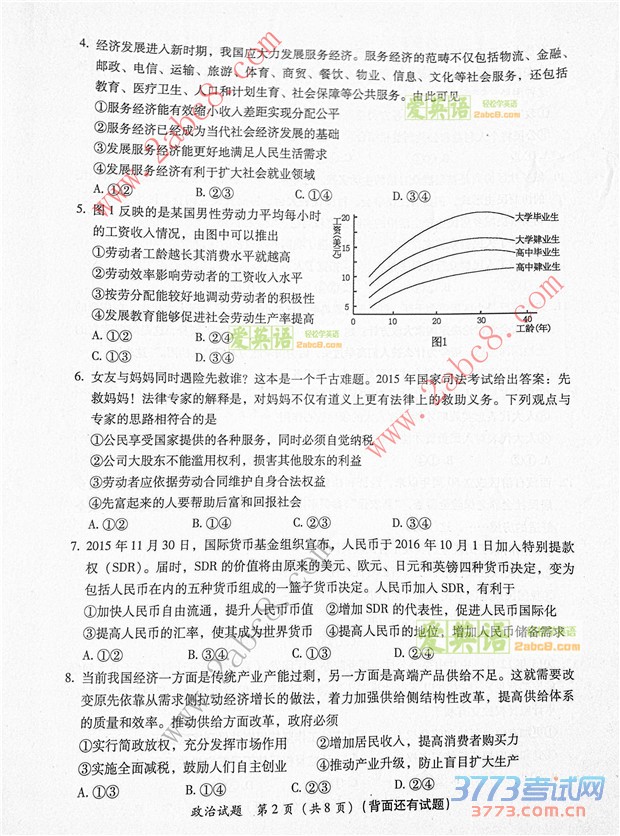 4. 经济发展进入新时期，我国应大力发展服务经济。服务经济的范畴不仅包括物流、金融、
邮政、电信、运输、旅游、体育、商贸、餐饮、物业、信息、文化等社会服务，还包括
教育、医疗卫生、人口和计划生育、社会保障等公共服务。由此可见
①服务经济能有效缩小收入差距实现分配公平
②服务经济已经成为当代社会经济发展的基础
③发展服务经济能更好地满足人民生活需求
④发展服务经济有利于扩大社会就业领域
A. ①② B. ②③ C. ①④ D. ③④
5. 图1反映的是某国男性劳动力平均每小时
的工资收入情况，由图中可以推出
①劳动者工龄越长其消费水平就越高
②劳动效率影响劳动者的工资收入水平
③按劳分配能较好地调动劳动者的积极性
④发展教育能够促进社会劳动生产率提高
A. ①② B. ②④
C. ①③ D. ③④
工资(美元)
20
15
10
5
0 10 20 30 40
工龄(年)
大学毕业生
大学肄业生
高中毕业生
高中肄业生
图1
6. 女友与妈妈同时遇险先救谁？这本是一个千古难题。2015年国家司法考试给出答案：先
救妈妈！法律专家的解释是，对妈妈不仅有道义上更有法律上的救助义务。下列观点与
专家的思路相符合的是
①公民享受国家提供的各种服务，同时必须自觉纳税
②公司大股东不能滥用权利，损害其他股东的利益
③劳动者应依据劳动合同维护自身合法权益
④先富起来的人要帮助后富和回报社会
A. ①② B. ①④ C. ②③ D. ③④
7. 2015年11月30日，国际货币基金组织宣布，人民币于2016年10月1日加入特别提款
权（SDR）。届时，SDR的价值将由原来的美元、欧元、日元和英镑四种货币决定，变为
包括人民币在内的五种货币组成的一篮子货币决定。人民币加入SDR，有利于
①加快人民币自由流通，提升人民币币值 ②增加SDR的代表性，促进人民币国际化
③提高人民币的汇率，使其成为世界货币 ④提高人民币的地位，增加人民币储备需求
A. ①③ B. ①④ C. ②③ D. ②④
8. 当前我国经济一方面是传统产业产能过剩，另一方面是高端产品供给不足。这就需要改
变原先依靠从需求侧拉动经济增长的做法，着力加强供给侧结构性改革，提高供给体系
的质量和效率。推动供给方面改革，政府必须
①实行简政放权，充分发挥市场作用 ②增加居民收入，提高消费者购买力
③实施全面减税，鼓励人们自主创业 ④推动产业升级，防止盲目扩大生产
A. ①③ B. ①④ C. ②③ D. ②④
政治试题 第2页（共8页）（背面还有试题）
www.2abc8.com
www.2abc8.com
www.2abc8.com
爱英语 轻松学英语 2abc8.com
爱英语 轻松学英语 2abc8.com
爱英语 轻松学英语 2abc8.com
3773考试网
3773.com.cn